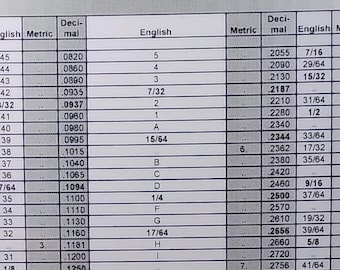 English Metric Deci- mal English Metric Deci- mal English
45 .. .0820 5 .. .2055 7/16
44 .. .0860 4 .. .2090 29/64
43 .. .0890 3 .. .2130 15/32
42 .. .0935 7/32 .. .2187 ..
3/32 .. .0937 2 .. .2210 31/64
41 .. .0960 1 .. .2280 1/2
40 .. .0980 A .. .2340 ..
39 .. .0995 15/64 .. .2344 33/64
38 .. .1015 .. 6. .2362 17/32
37 .. .1040 B .. .2380 35/64
36 .. .1065 C .. .2420 ..
7/64 .. .1094 D .. .2460 9/16
35 .. .1100 1/4 .. .2500 37/64
34 .. .1110 F .. .2570 ..
33 .. .1130 G .. .2610 19/32
32 .. .1160 17/64 .. .2656 39/64
.. 3. .1181 H .. .2660 5/8
31 .. .1200 I .. .2720 ..
1/8 .. .1250 .. 7. .2756 41/64